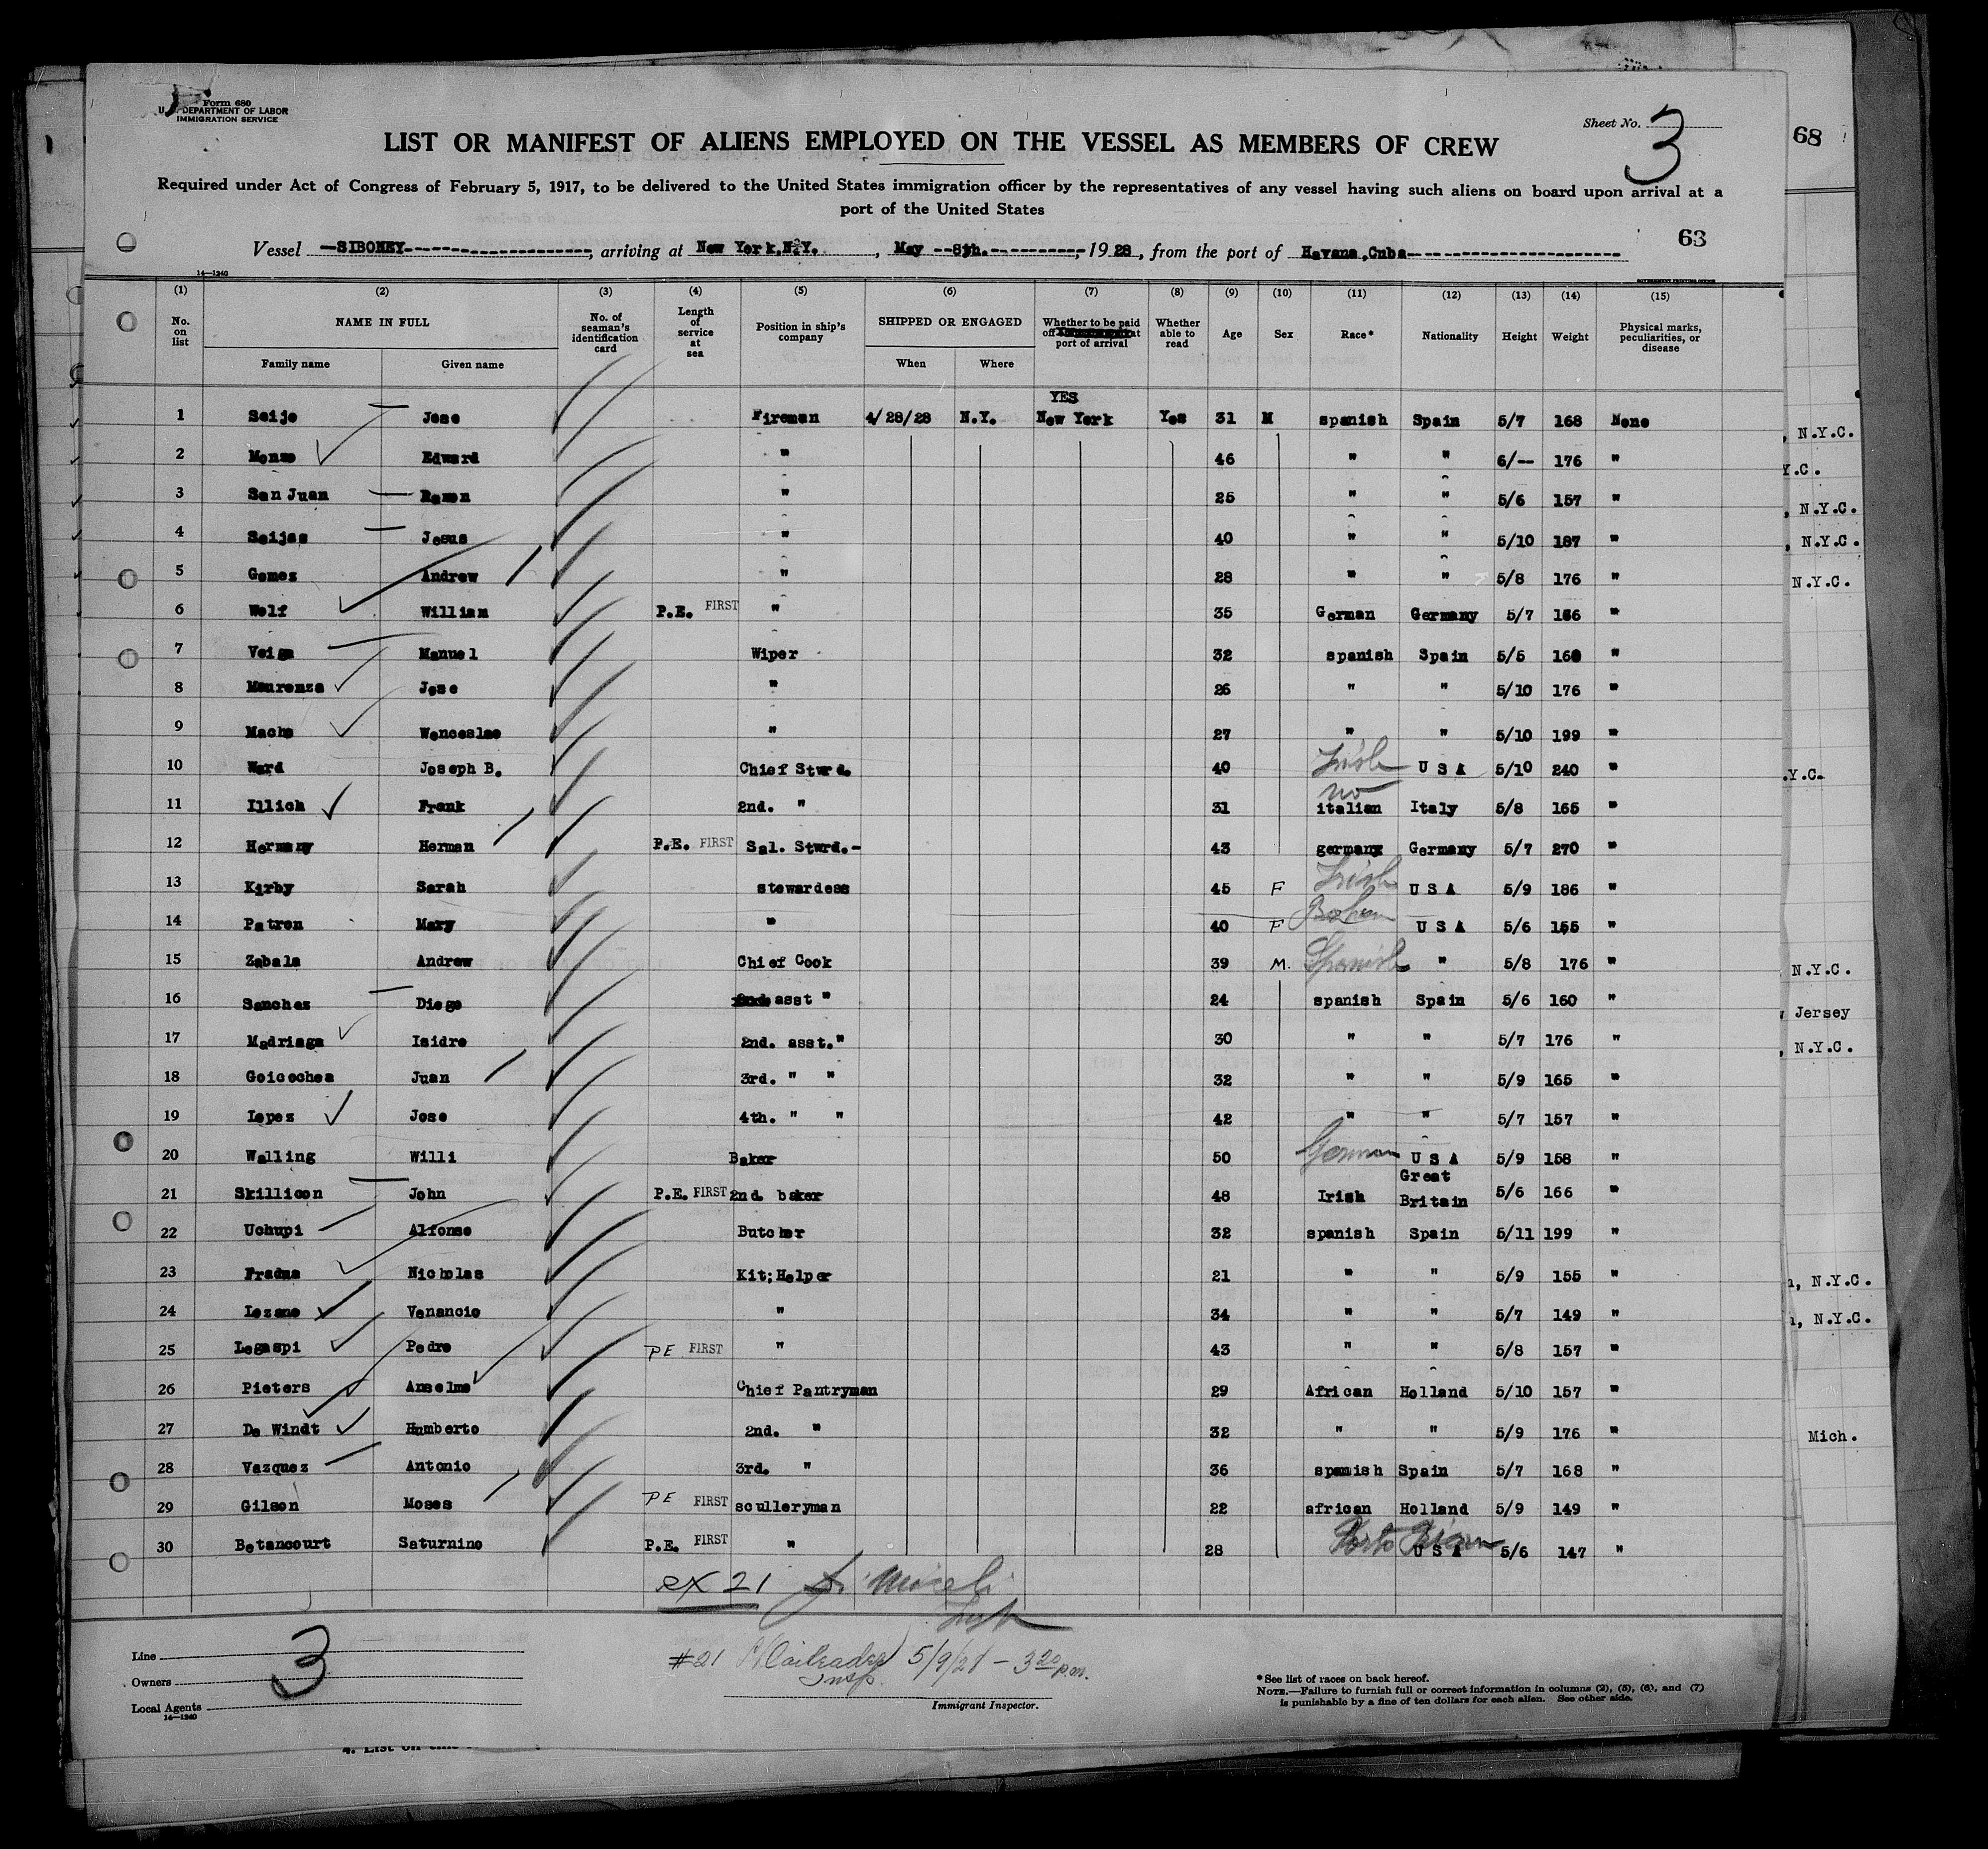 Form 680
U. S. DEPARTMENT OF LABOR
IMMIGRATION SERVICE
Sheet No. 3
68
LIST OR MANIFEST OF ALIENS EMPLOYED ON THE VESSEL AS MEMBERS OF CREW
Required under Act of Congress of February 5, 1917, to be delivered to the United States immigration officer by the representatives of any vessel having such aliens on board upon arrival at a
port of the United States
63
Vessel SIBONEY, arriving at New York,N.Y., May 8th. 1928, from the port of Havana,Cuba
14—1240
GOVERNMENT PRINTING OFFICE
(1) (2) (3) (4) (5) (6) (7) (8) (9) (10) (11) (12) (13) (14) (15)
No. on list NAME IN FULL Family name Given name No. of seaman's identification card Length of service at sea Position in ship's company SHIPPED OR ENGAGED When Where Whether to be paid off at port of arrival Whether able to read Age Sex Race* Nationality Height Weight Physical marks, peculiarities, or disease
YES
1 Seijo Jose Fireman 4/28/28 N.Y. New York Yes 31 M spanish Spain 5/7 168 None
2 Monso Edward " 46 " " 6/-- 176 "
3 San Juan Ramon " 25 " " 5/6 157 "
4 Seijas Jesus " 40 " " 5/10 187 "
5 Gomez Andrew " 28 " " 5/8 176 "
6 Wolf William P.E. FIRST " 35 German Germany 5/7 166 "
7 Veiga Manuel Wiper 32 spanish Spain 5/5 160 "
8 Mourenza Jose " 26 " " 5/10 176 "
9 Macho Wenceslao " 27 " " 5/10 199 "
10 Ward Joseph B. Chief Stwrd. 40 Irish U S A 5/10 240 "
11 Illich Frank 2nd. " 31 no italian Italy 5/8 165 "
12 Hermany Herman P.E. FIRST Sal. Stwrd.- 43 german Germany 5/7 270 "
13 Kirby Sarah stewardess 45 F Irish U S A 5/9 186 "
14 Patron Mary " 40 F Bohem U S A 5/6 155 "
15 Zabala Andrew Chief Cook 39 M. Spanish " 5/8 176 "
16 Sanchez Diego asst " 24 spanish Spain 5/6 160 "
17 Madriaga Isidro 2nd. asst." 30 " " 5/7 176 "
18 Goicochea Juan 3rd. " " 32 " " 5/9 165 "
19 Lopez Jose 4th. " " 42 " " 5/7 157 "
20 Walling Willi Baker 50 German U S A 5/9 158 "
21 Skillicon John P.E. FIRST 2nd. baker 48 Irish Great Britain 5/6 166 "
22 Uchupi Alfonso Butcher 32 spanish Spain 5/11 199 "
23 Pradua Nicholas Kit;Helper 21 " " 5/9 155 "
24 Lozano Venancio " 34 " " 5/7 149 "
25 Legaspi Pedro PE FIRST " 43 " " 5/8 157 "
26 Pieters Anselmo Chief Pantryman 29 African Holland 5/10 157 "
27 De Windt Humberto 2nd. " 32 " " 5/9 176 "
28 Vazquez Antonio 3rd. " 36 spanish Spain 5/7 168 "
29 Gilson Moses PE FIRST sculleryman 22 african Holland 5/9 149 "
30 Betancourt Saturnino P.E. FIRST " 28 Porto Rican U S A 5/6 147 "
ex 21
Insp
#21 Insp. 5/9/28 - 3 20 p.m.
Immigrant Inspector.
Line
Owners
Local Agents
14—1240
3
* See list of races on back hereof.
NOTE.—Failure to furnish full or correct information in columns (2), (5), (6), and (7)
is punishable by a fine of ten dollars for each alien. See other side.
, N.Y.C.
Y.C.
, N.Y.C.
, N.Y.C.
N.Y.C.
.Y.C.
N.Y.C.
Jersey
, N.Y.C.
, N.Y.C.
, N.Y.C.
Mich.